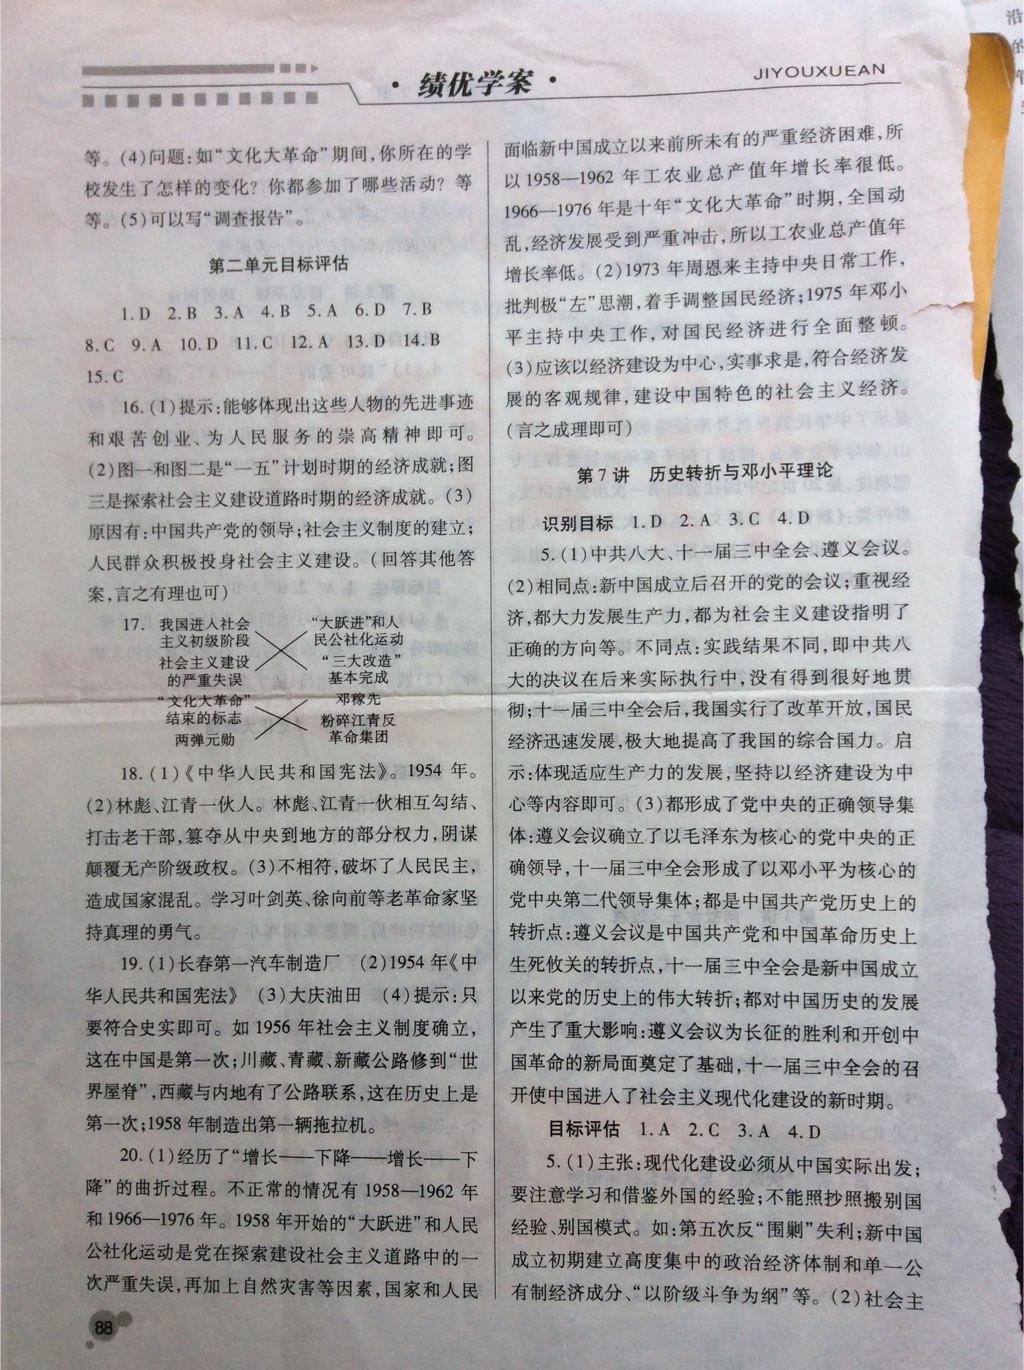 ·绩优学案·
JIYOUXUEAN
等。(4)问题:如“文化大革命”期间,你所在的学
校发生了怎样的变化?你都参加了哪些活动?等
等。(5)可以写“调查报告”。
第二单元目标评估
1.D 2.B 3.A 4.B 5.A 6.D 7.B
8.C 9.A 10.D 11.C 12.A 13.D 14.B
15.C
16.(1)提示:能够体现出这些人物的先进事迹
和艰苦创业、为人民服务的崇高精神即可。
(2)图一和图二是“一五”计划时期的经济成就;图
三是探索社会主义建设道路时期的经济成就。(3)
原因有:中国共产党的领导;社会主义制度的建立;
人民群众积极投身社会主义建设。(回答其他答
案,言之有理也可)
17. 我国进入社会 “大跃进”和人
主义初级阶段 民公社化运动
社会主义建设 “三大改造”
的严重失误 基本完成
“文化大革命” 邓稼先
结束的标志 粉碎江青反
两弹元勋 革命集团
18.(1)《中华人民共和国宪法》。1954年。
(2)林彪、江青一伙人。林彪、江青一伙相互勾结、
打击老干部,篡夺从中央到地方的部分权力,阴谋
颠覆无产阶级政权。(3)不相符,破坏了人民民主,
造成国家混乱。学习叶剑英、徐向前等老革命家坚
持真理的勇气。
19.(1)长春第一汽车制造厂 (2)1954年《中
华人民共和国宪法》 (3)大庆油田 (4)提示:只
要符合史实即可。如1956年社会主义制度确立,
这在中国是第一次;川藏、青藏、新藏公路修到“世
界屋脊”,西藏与内地有了公路联系,这在历史上是
第一次;1958年制造出第一辆拖拉机。
20.(1)经历了“增长——下降——增长——下
降”的曲折过程。不正常的情况有1958—1962年
和1966—1976年。1958年开始的“大跃进”和人民
公社化运动是党在探索建设社会主义道路中的一
次严重失误,再加上自然灾害等因素,国家和人民
88
面临新中国成立以来前所未有的严重经济困难,所
以1958—1962年工农业总产值年增长率很低。
1966—1976年是十年“文化大革命”时期,全国动
乱,经济发展受到严重冲击,所以工农业总产值年
增长率低。(2)1973年周恩来主持中央日常工作,
批判极“左”思潮,着手调整国民经济;1975年邓小
平主持中央工作,对国民经济进行全面整顿。
(3)应该以经济建设为中心,实事求是,符合经济发
展的客观规律,建设中国特色的社会主义经济。
(言之成理即可)
第7讲 历史转折与邓小平理论
识别目标 1.D 2.A 3.C 4.D
5.(1)中共八大、十一届三中全会、遵义会议。
(2)相同点:新中国成立后召开的党的会议;重视经
济,都大力发展生产力,都为社会主义建设指明了
正确的方向等。不同点:实践结果不同,即中共八
大的决议在后来实际执行中,没有得到很好地贯
彻;十一届三中全会后,我国实行了改革开放,国民
经济迅速发展,极大地提高了我国的综合国力。启
示:体现适应生产力的发展,坚持以经济建设为中
心等内容即可。(3)都形成了党中央的正确领导集
体:遵义会议确立了以毛泽东为核心的党中央的正
确领导,十一届三中全会形成了以邓小平为核心的
党中央第二代领导集体;都是中国共产党历史上的
转折点:遵义会议是中国共产党和中国革命历史上
生死攸关的转折点,十一届三中全会是新中国成立
以来党的历史上的伟大转折;都对中国历史的发展
产生了重大影响:遵义会议为长征的胜利和开创中
国革命的新局面奠定了基础,十一届三中全会的召
开使中国进入了社会主义现代化建设的新时期。
目标评估 1.A 2.C 3.A 4.D
5.(1)主张:现代化建设必须从中国实际出发;
要注意学习和借鉴外国的经验;不能照抄照搬别国
经验、别国模式。如:第五次反“围剿”失利;新中国
成立初期建立高度集中的政治经济体制和单一公
有制经济成分、“以阶级斗争为纲”等。(2)社会主